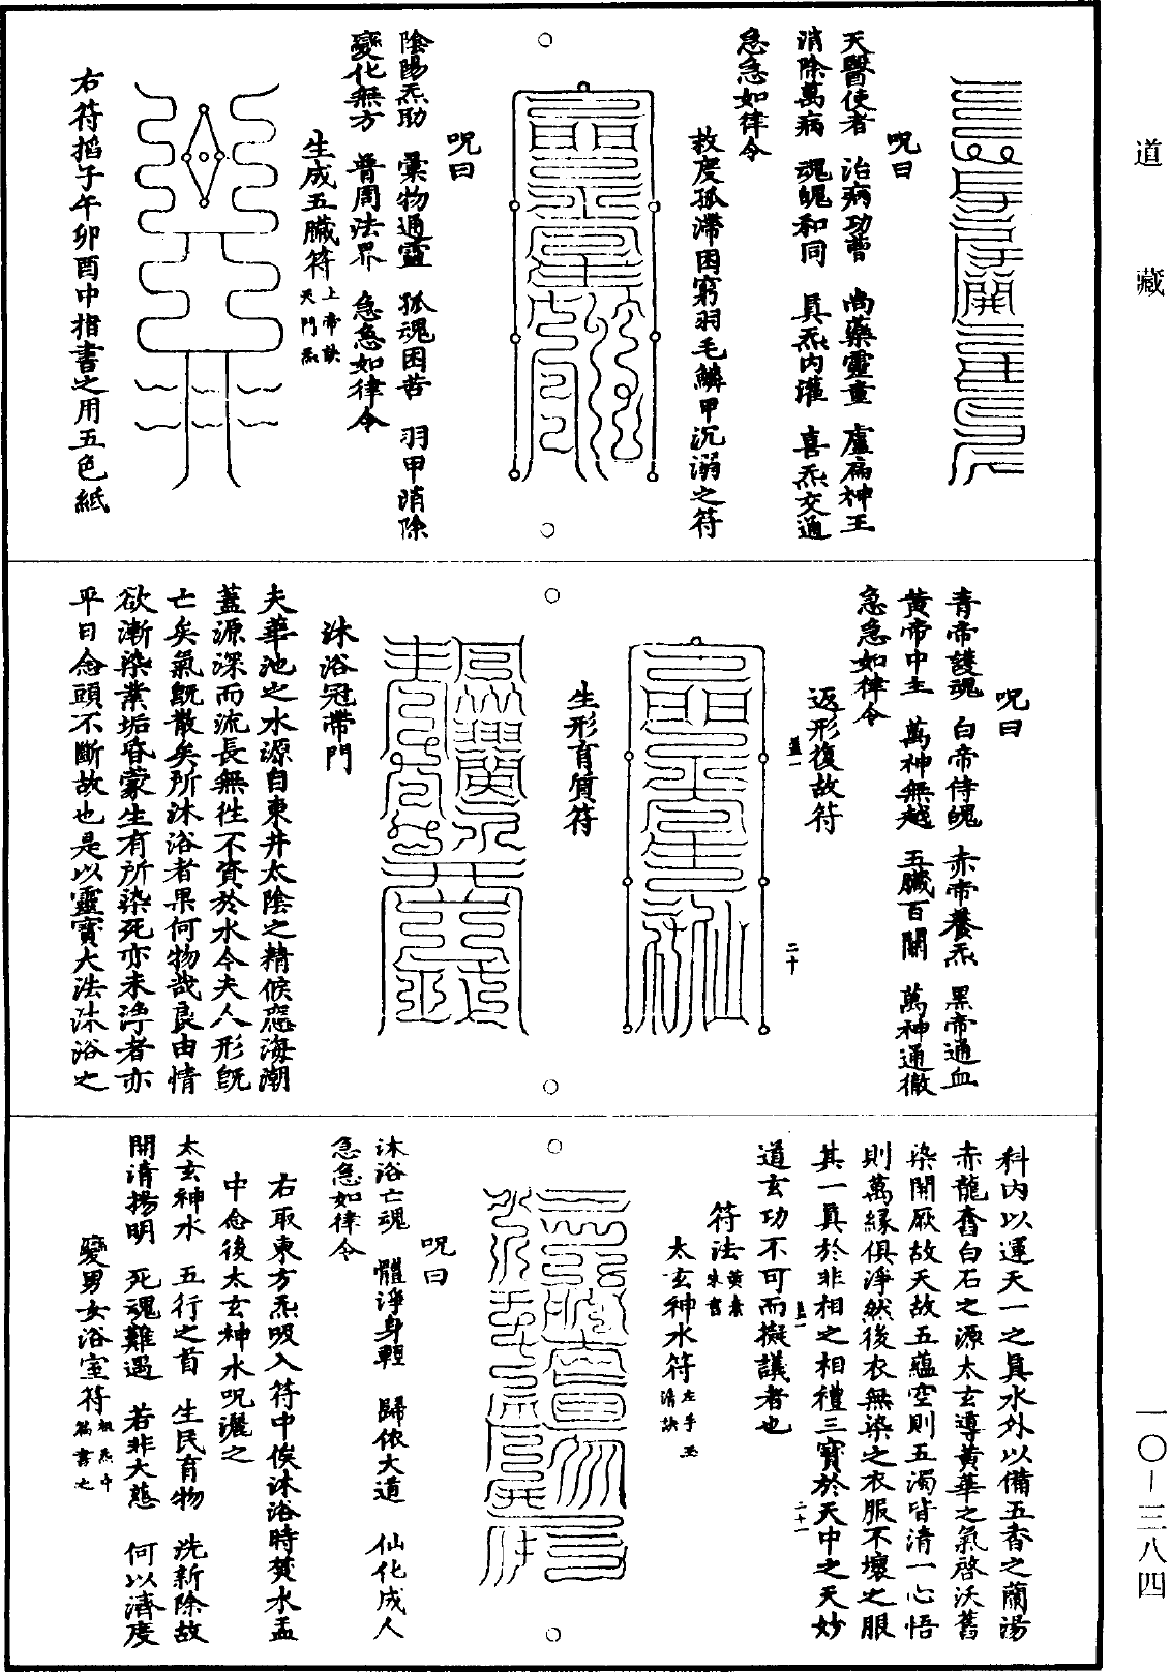 道藏
呪曰
天醫使者　治病功曹　尚藥靈童　盧扁神王
消除萬病　魂魄和同　真炁內灌　喜炁交通
急急如律令
救度孤滯困窮羽毛鱗甲沉溺之符
呪曰
陰陽炁助　彙物通靈　孤魂困苦　羽甲消除
變化無方　普周法界　急急如律令
生成五臟符上帝訣天門炁
右符掐子午卯酉中指書之用五色紙
呪曰
青帝護魂　白帝侍魄　赤帝養炁　黑帝通血
黃帝中主　萬神無越　五臟百關　萬神通徹
急急如律令
返形復故符
二十
生形育質符
沐浴冠帶門
夫華池之水源自東井太陰之精候應海潮
蓋源深而流長無往不資於水今夫人形既
亡矣氣既散矣所沐浴者果何物哉良由情
欲漸染業垢昏蒙生有所染死亦未淨者亦
平日念頭不斷故也是以靈寶大法沐浴之
科內以運天一之真水外以備五香之蘭湯
赤龍奮白石之源太玄導黃華之氣啓沃舊
染開厥故天故五蘊空則五濁皆清一心悟
則萬緣俱淨然後衣無染之衣服不壞之服
其一真於非相之相禮三寶於天中之天妙
二十一
道玄功不可而擬議者也
符法黃素朱書
太玄神水符左手玉清訣
呪曰
沐浴亡魂　體淨身輕　歸依大道　仙化成人
急急如律令
右取東方炁吸入符中俟沐浴時焚水盂
中念後太玄神水呪灑之
太玄神水　五行之首　生民育物　洗新除故
開清揚明　死魂難遇　若非大慈　何以濟度
變男女浴室符祖炁中篇書之
一〇－三八四